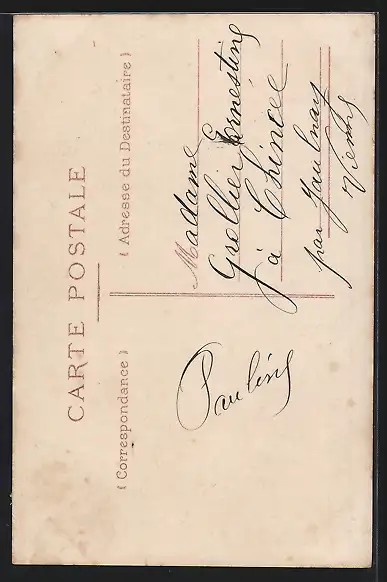 CARTE POSTALE
(Correspondance)
(Adresse du Destinataire)
Pauline
Madame
Grellier Ernestine
à Chincé
par Jaulnay
Vienne